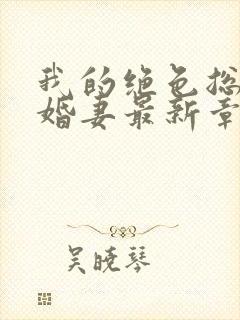 我的绝色总
婚妻最新章
吴晓琴